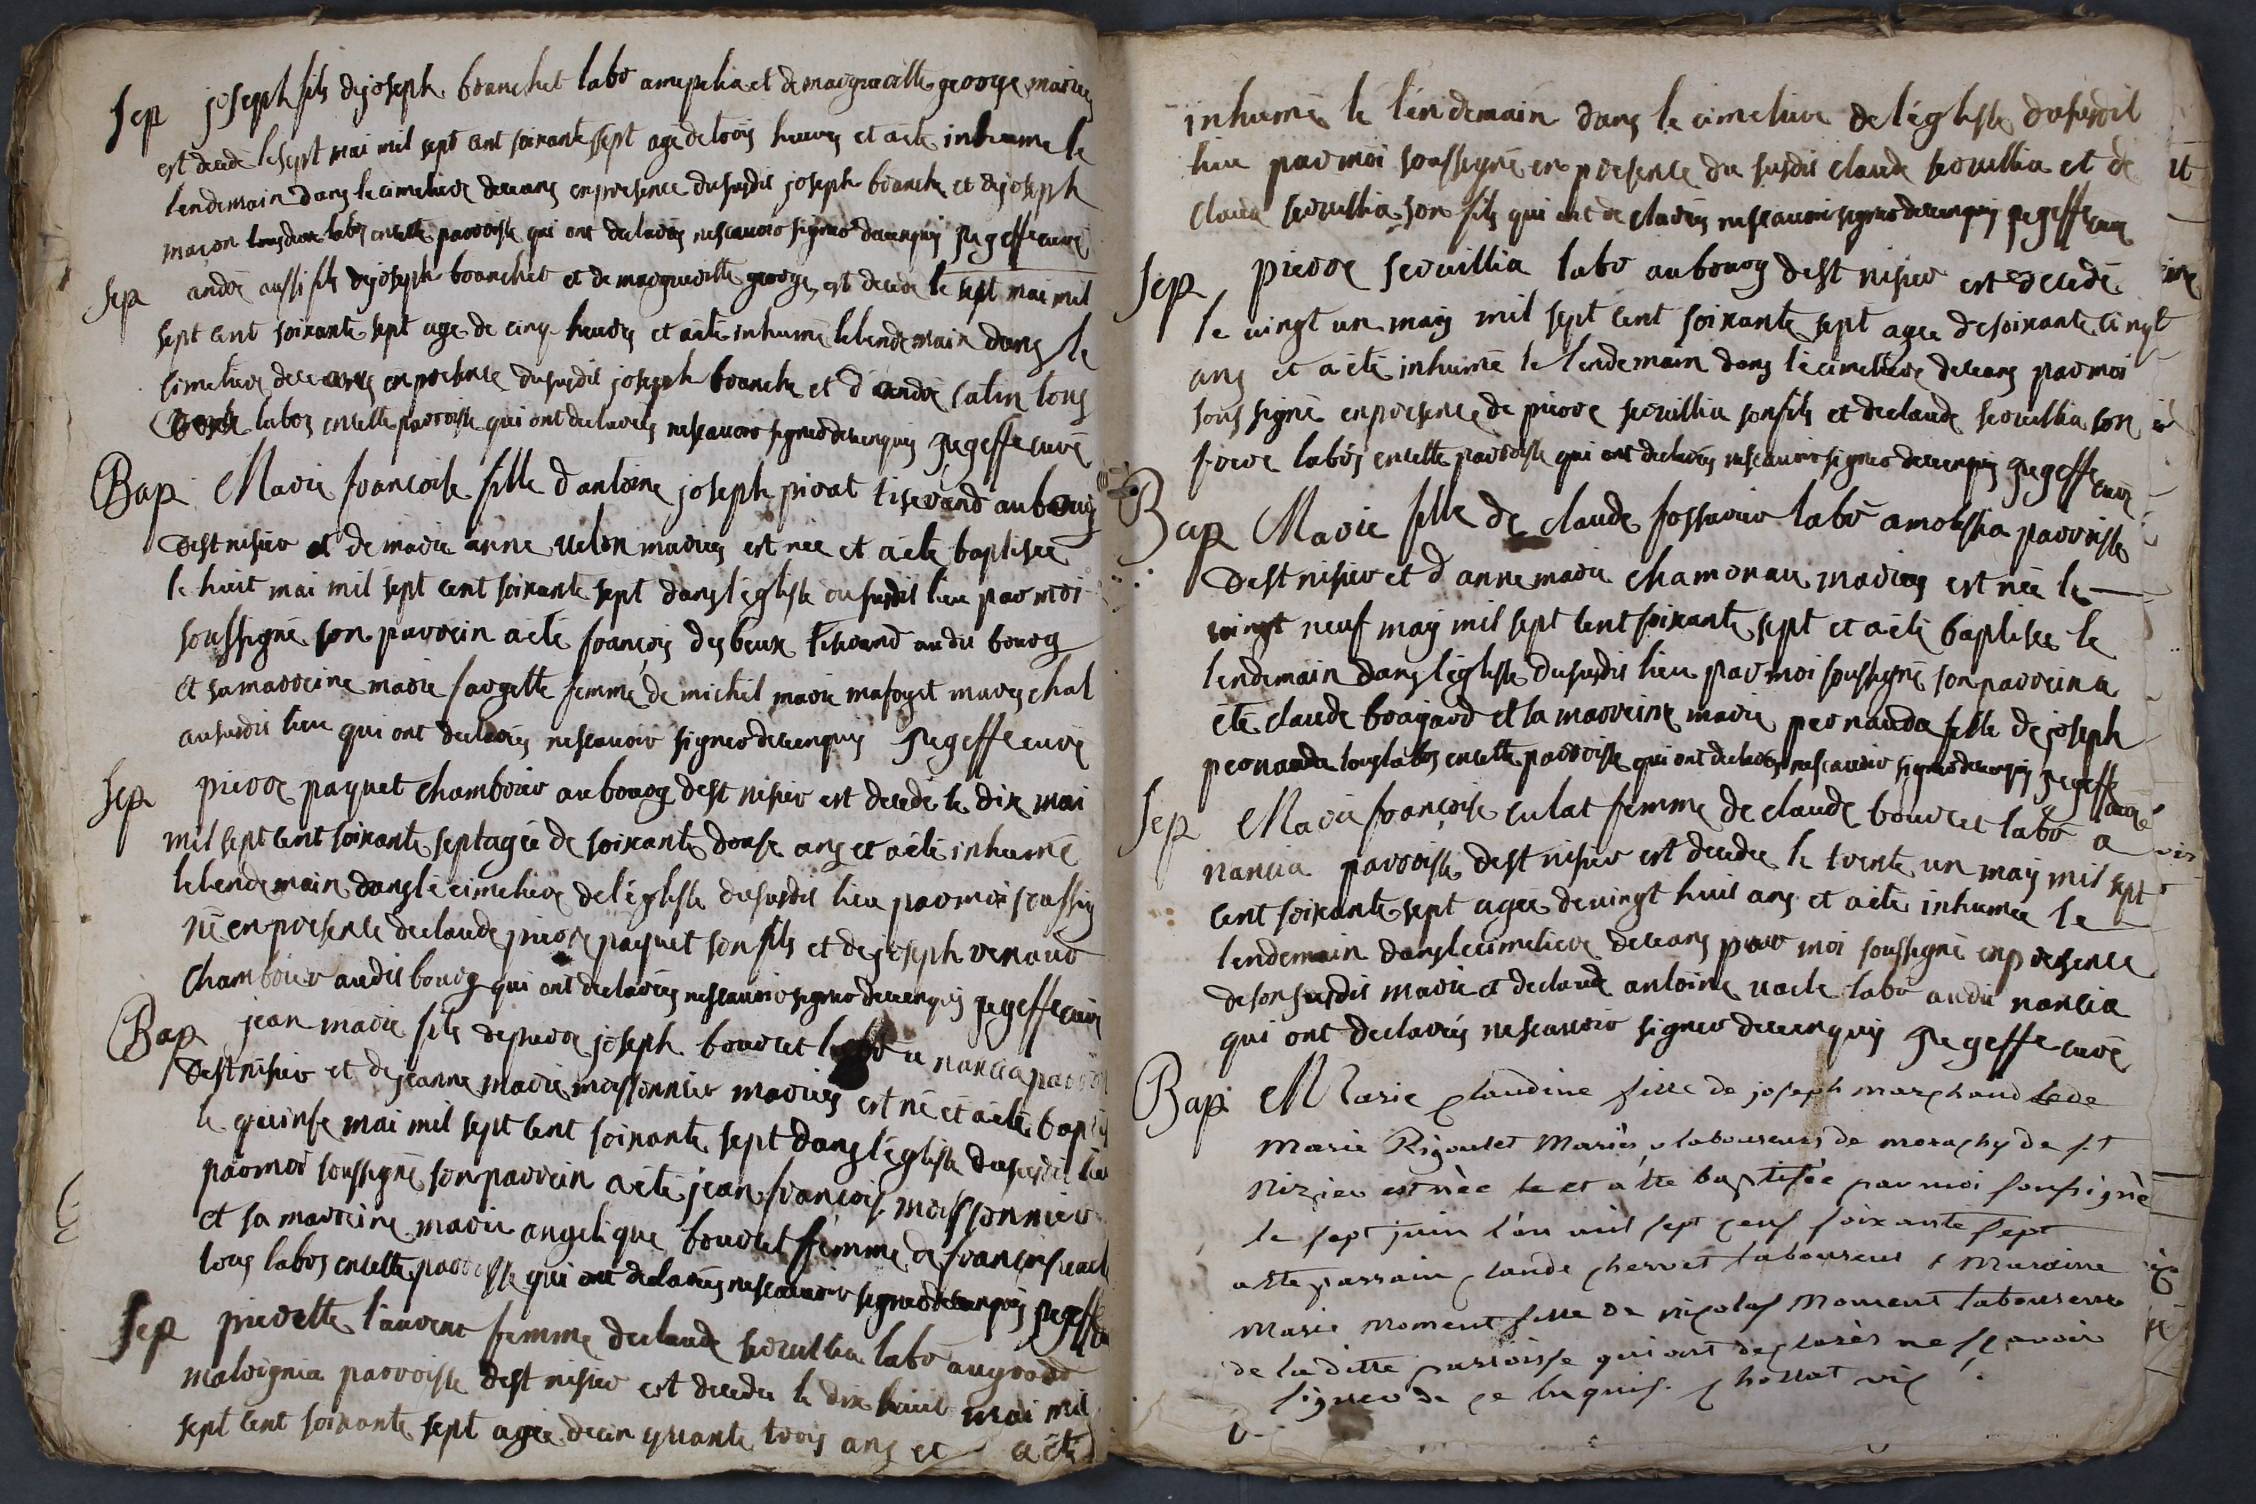 Sep joseph fils de joseph branchet labr a mepelia et de margueritte george mariez
est decedé le sept mai mil sept cent soixante sept agé de trois heures et a ete inhumé le
lendemain dans le cimetiere de ceans en presence du susdit joseph branche et de joseph
maçon tous deux labrs en cette parroisse qui ont declarés ne scavoir signer de ce enquis jugeffe curé
Sep andré aussi fils de joseph branchet et de margueritte george est decedé le sept mai mil
sept cent soixante sept agé de cinq heures et a ete inhumé le lendemain dans le
cimetiere de ceans en presence du susdit joseph branche et d'andré catin tous
labrs en cette parroisse qui ont declarés ne scavoir signer de ce enquis jugeffe curé
Bap Marie francoise fille d'antoine joseph pirat tiserand au bourg
de st nisier et de marie anne velon mariez est née et a eté baptisée
le huit mai mil sept cent soixante sept dans l'eglise du susdit lieu par moi
soussigné son parrein a eté françois desbeux tiserand au dit bourg
et sa marreine marie fargette femme de michel marie mafoyet mareschal
au susdit lieu qui ont declarés ne scavoir signer de ce enquis jugeffe curé
Sep pierre paquet chambrier au bourg de st nisier est decedé le dix mai
mil sept cent soixante sept agée de soixante douse ans et a eté inhumé
le lendemain dans le cimetiere de l'eglise du susdit lieu par moi soussig
né en presence de claude pierre paquet son fils et de joseph renaud
chambrier audit bourg qui ont declarés ne scavoir signer de ce enquis jugeffe curé
Bap jean marie fils de pierre joseph bourcet labr a nancia parroi
de st nisier et de jeanne marie moissonnier mariez est né et a eté bapti
le quinse mai mil sept cent soixante sept dans l'eglise du susdit lieu
par moi soussigné son parrein a eté jean françois moissonnier
et sa marreine marie angelique bourcet femme de françois
tous labrs en cette parroisse qui ont declarés ne scavoir signer de ce enquis jugeffe
Sep pierrette laurent femme de claude secrullia labr au grand
malvignia parroisse de st nisier est decedée le dix huit mai mil
sept cent soixante sept agée de cinquante trois ans et a eté
inhumé le lendemain dans le cimetiere de l'eglise du susdit
lieu par moi soussigné en presence du susdit claude secrullia et de
claude secrullia son fils qui ont declarés ne scavoir signer de ce enquis jugeffe curé
Sep pierre secrullia labr au bourg de st nisier est decedé
le vingt un may mil sept cent soixante sept agée de soixante cinqt
ans et a eté inhumé le lendemain dans le cimetiere de ceans par moi
soussigné en presence de pierre secrullia son fils et de claude secrullia son
frere labrs en cette parroisse qui ont declarés ne scavoir signer de ce enquis jugeffe curé
Bap Marie fille de claude fossurier labr a moissia parroisse
de st nisier et d'anne marie chamonau mariez est née le
vingt neuf may mil sept cent soixante sept et a eté baptisée le
lendemain dans l'eglise du susdit lieu par moi soussigné son parrein a
eté claude bragard et sa marreine marie peonauda fille de joseph
peonauda tous labrs en cette parroisse qui ont declarés ne scavoir signer de ce enquis jugeffe curé
Sep Marie françoise culat femme de claude bourcet labr a
nancia parroisse de st nisier est decedée le trente un may mil sept
cent soixante sept agée de vingt huit ans et a eté inhumée le
lendemain dans le cimetiere de ceans par moi soussigné en presence
de son susdit marie et de claude antoine vacle labr au dit nancia
qui ont declarés ne scavoir signer de ce enquis jugeffe curé
Bap Marie claudine fille de joseph marchand et de
marie Rigoulet Mariés, laboureurs de morachy de st
Nizier est née et a ete baptisée par moi soussigné
le sept juin l'an mil sept cens soixante sept
a ete parrain claude chervet laboureur & Maraine
marie moment fille de nicolas Moment laboureur
de la ditte parroisse qui ont declarés ne sçavoir
signer de ce enquis. chossat vic